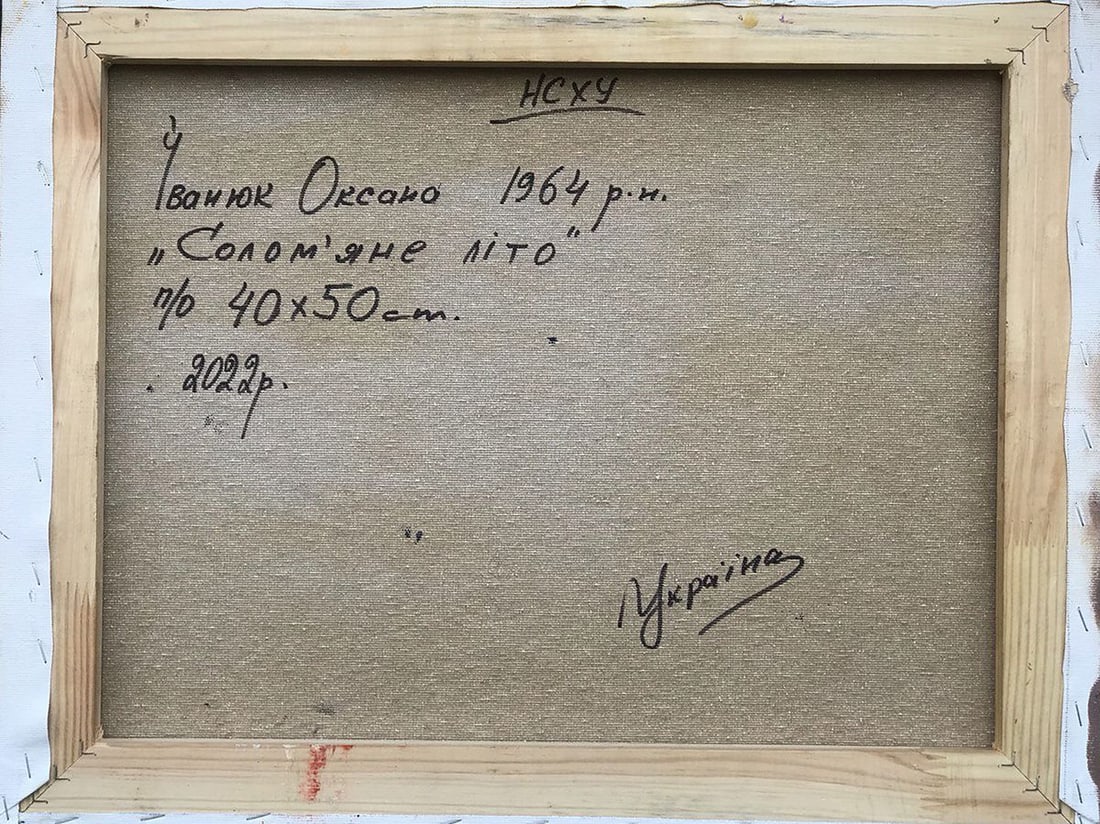 НСХУ
Іванюк Оксана 1964 р.н.
„Солом'яне літо"
п/о 40х50 ст.
2022р.
Україна